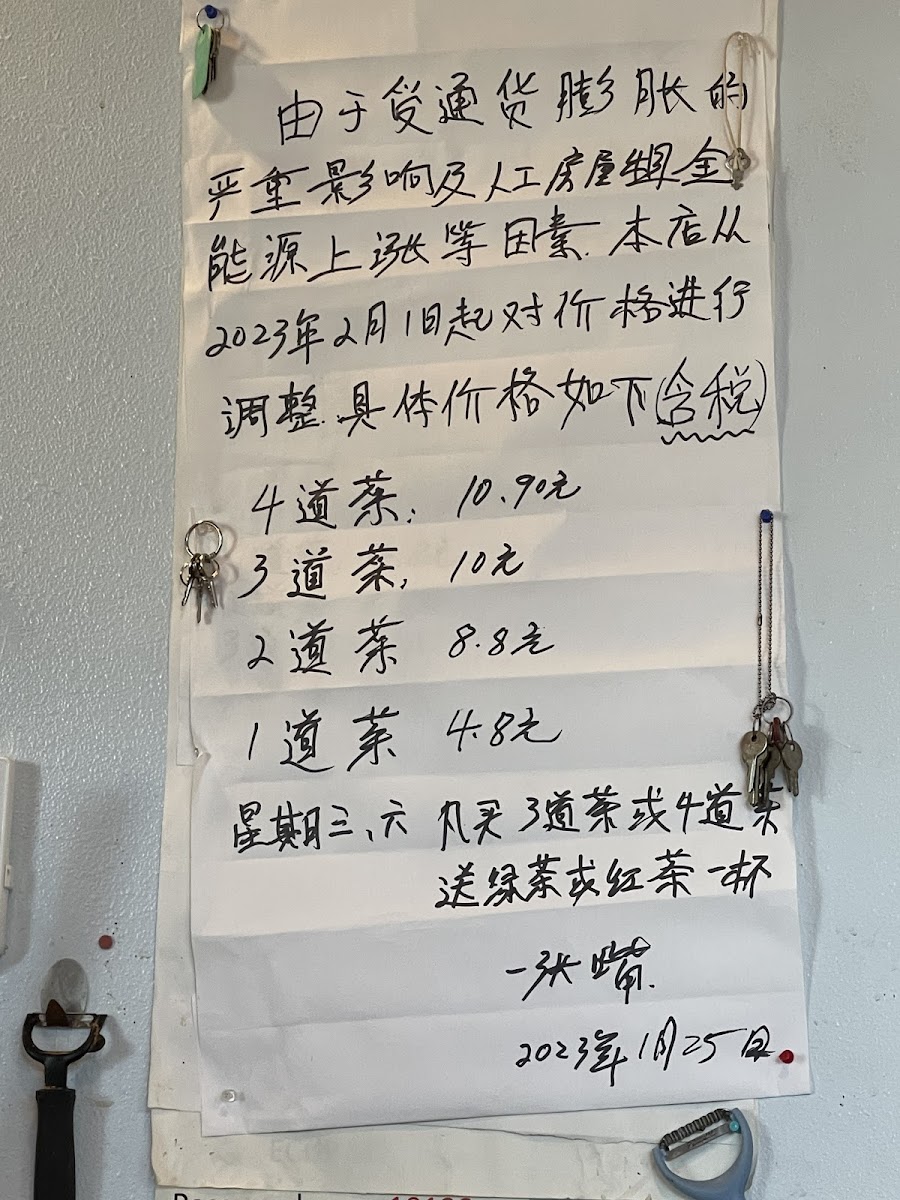 由于受通货膨胀的
严重影响及人工房屋租金
能源上涨等因素.本店从
2023年2月1日起对价格进行
调整.具体价格如下(含税)
4道菜: 10.90元
3道菜: 10元
2道菜 8.8元
1道菜 4.8元
星期三、六 凡买3道菜或4道菜
送绿茶或红茶一杯
一张嘴.
2023年1月25日